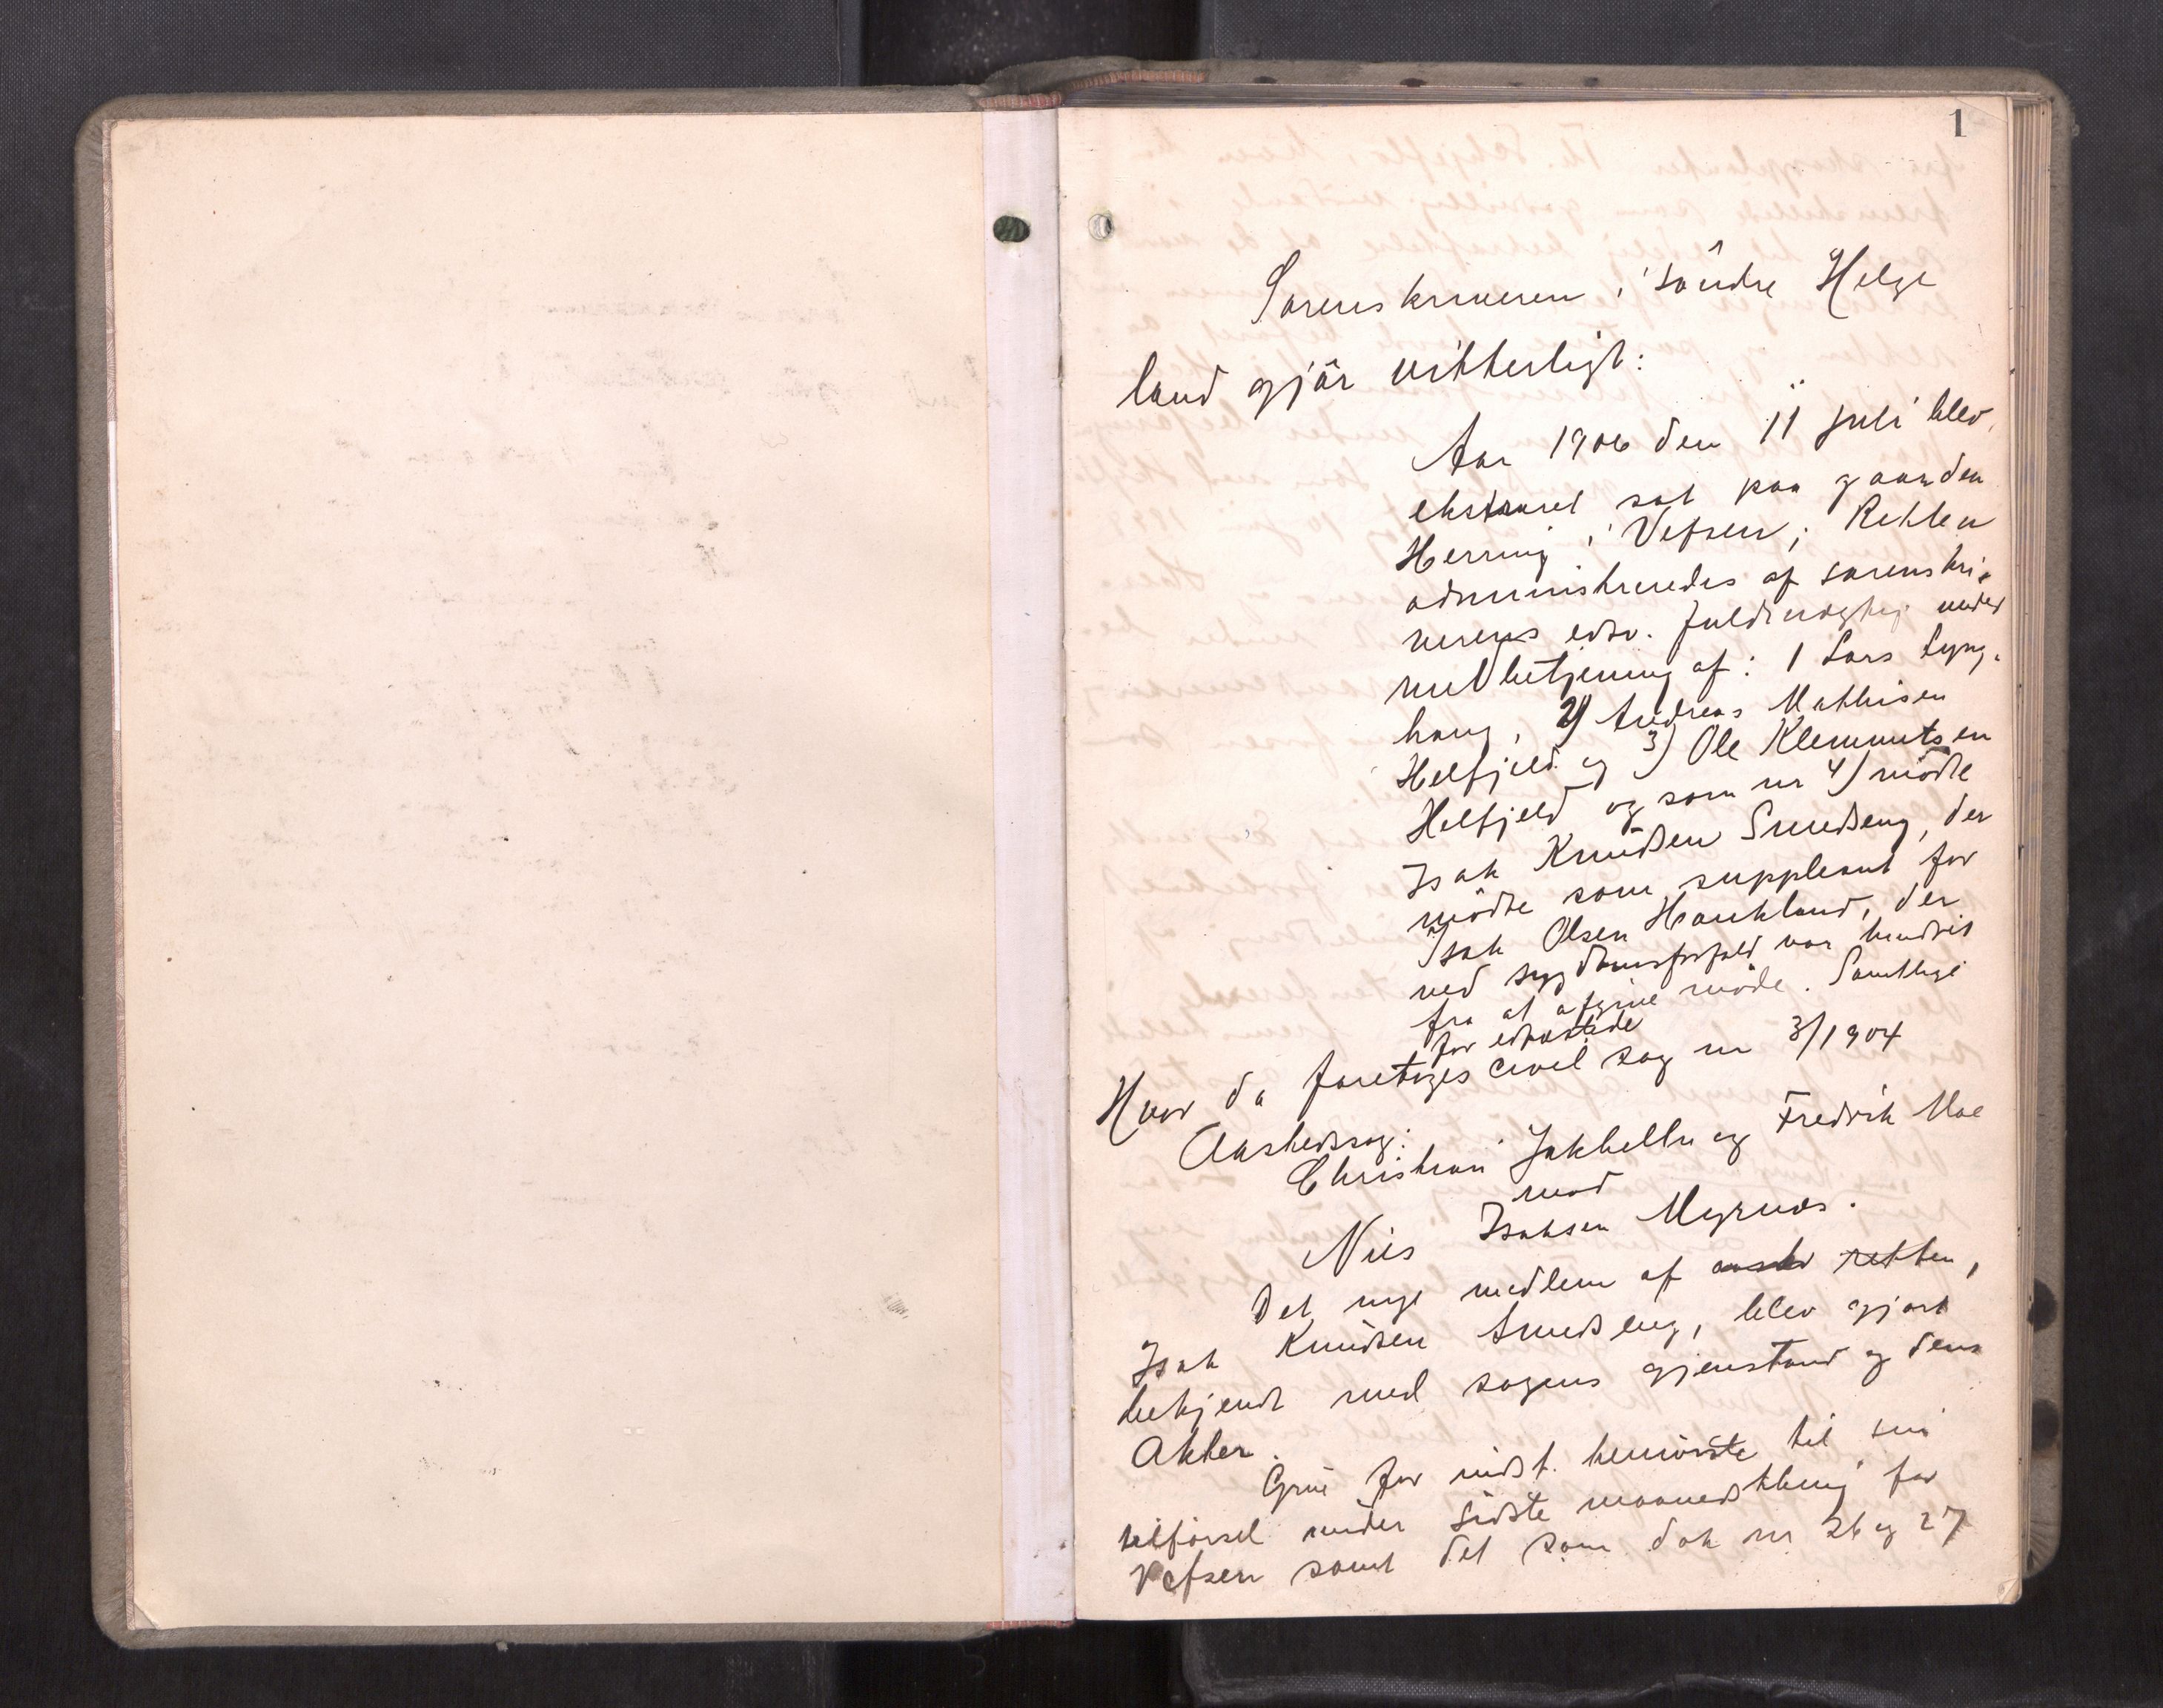 1
Sorenskriveren i søndre Helge
land gjør vitterligt:
Aar 1906 den 11 juli blev
ekstraret sat paa gaarden
Herring i Vefsen; Retten
administreredes af sorenskri-
verens edsv. fuldmægtig under
medbetjening af: 1 Lars Lyng-
haug, 2) Andreas Mathisen
Helfjeld og 3) Ole Klemmetsen
Helfjeld og som nr 4) mødte
Isak Knudsen Smedseng, der
mødte som suppleant for
Isak Olsen Haukland, der
ved sygdomsforfald var hindret
fra at afgive møde. Samtlige
før edfæstede
Hvor da foretoges civil sag nr 3/1904
Aastedssag:
Christian Jakbelln og Fredrik Moe
mod
Nils Isaksen Myrnes.
Det nye medlem af retten,
Isak Knudsen Smedseng, blev gjort
bekjendt med sagens gjenstand og dens
Akter.
Grøn for indst. henviste til sin
tilførsel under sidste maanedsthing for
Vefsen samt det som dok nr 26 og 27